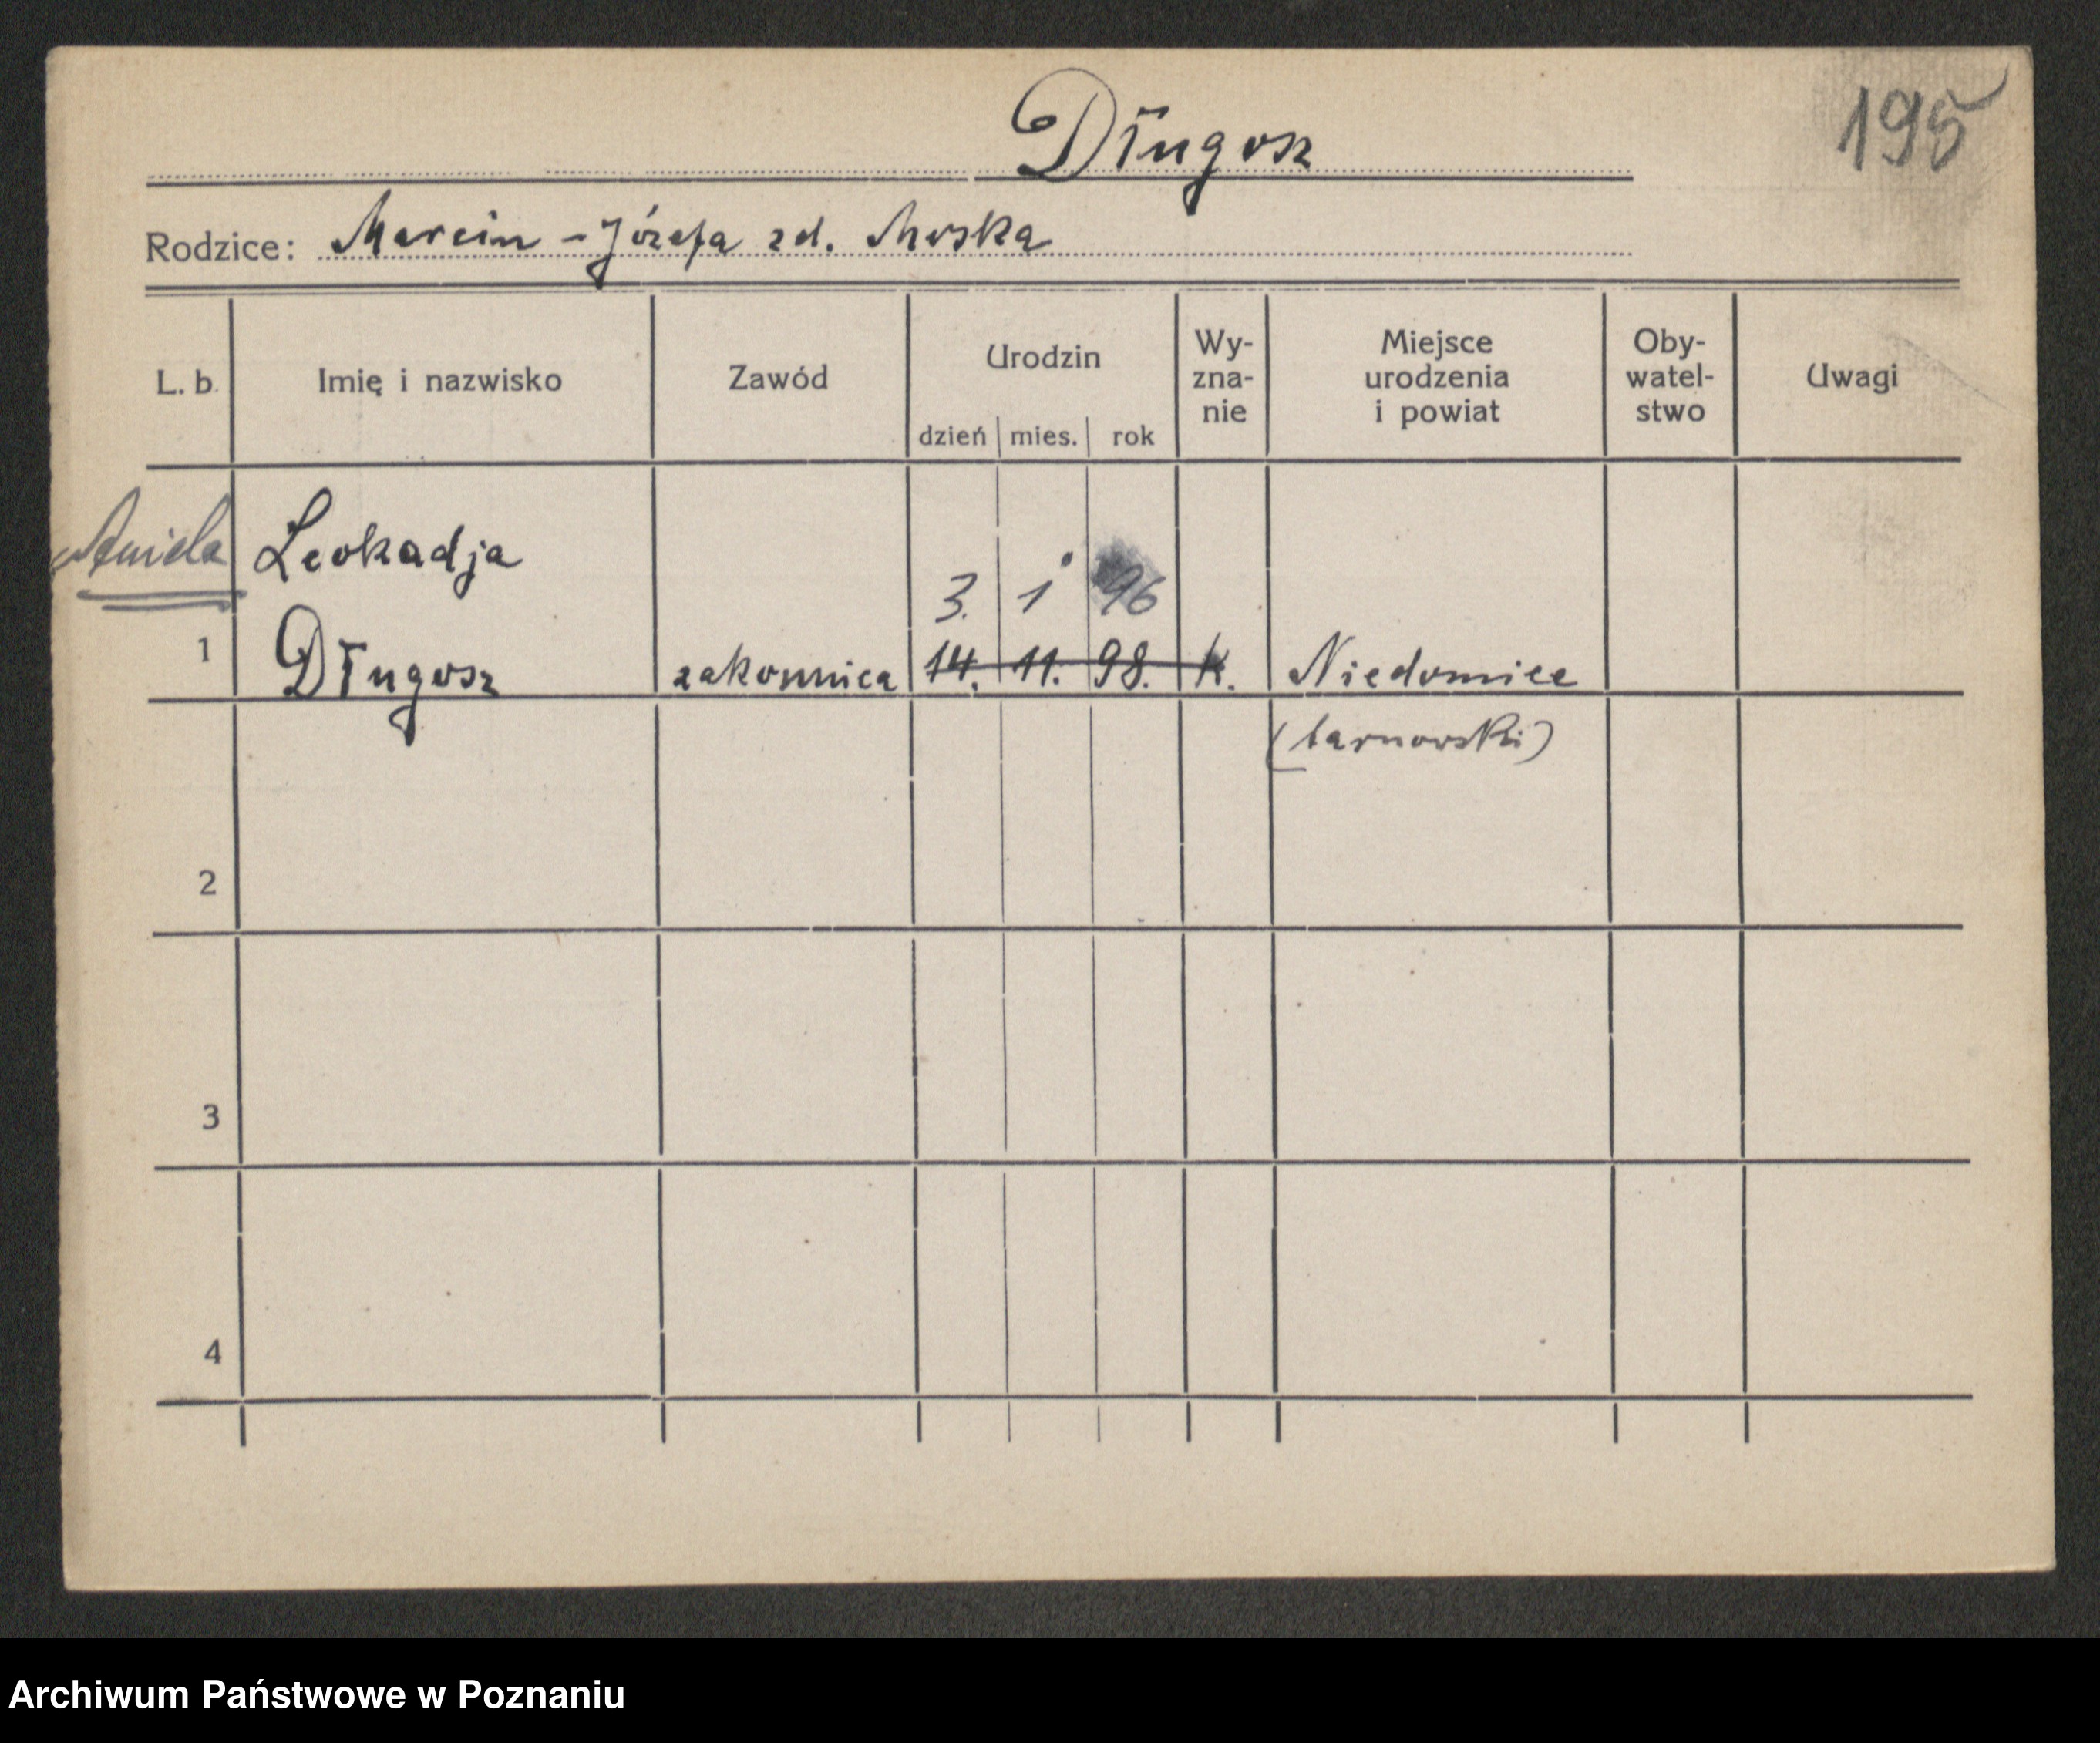 Długosz
195
Rodzice: Marcin - Józefa zd. Moska
L. b. Imię i nazwisko Zawód Urodzin dzień mies. rok Wy-zna-nie Miejsce urodzenia i powiat Oby-watel-stwo Uwagi
Aniela Leokadja
3. 1 96
1 Długosz zakonnica 14. 11. 98. K. Niedomice
(tarnowski)
2
3
4
Archiwum Państwowe w Poznaniu